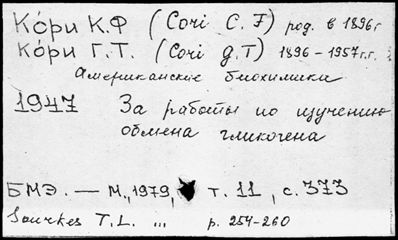 Ко́ри К.Ф (Cori C.F) род. в 1896г
Ко́ри Г.Т. (Cori g.T) 1896 – 1957г.г.
Американские биохимики
1947 За работы по изучению
обмена гликогена
БМЭ. — М., 1979, т. 11, с. 373
Sourkes T.L. ... p. 254-260